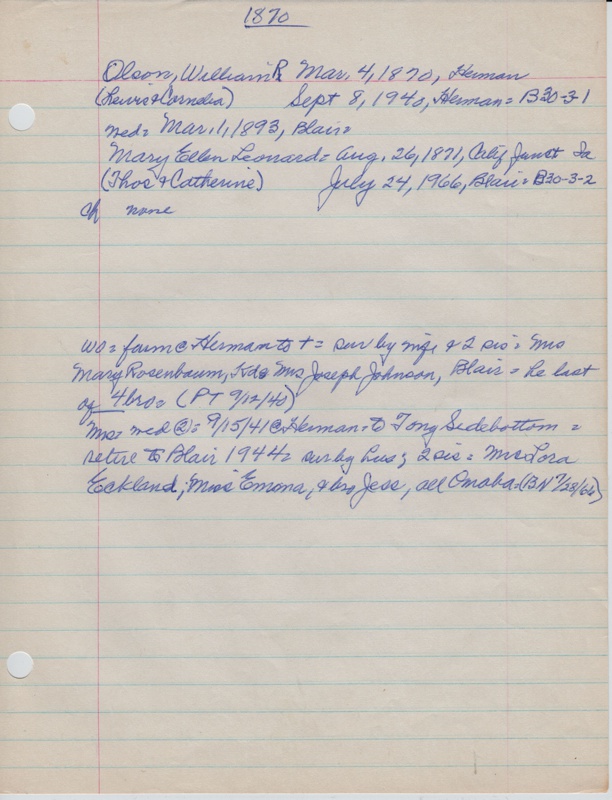 1870
Olson, William R. Mar. 4, 1870, Herman
(Lewis & Cornelia) Sept 8, 1940, Herman = B30-3-1
wed = Mar. 1, 1893, Blair =
Mary Ellen Leonard = Aug. 26, 1871, Calif Junct Ia
(Thos & Catherine) July 24, 1966, Blair = B30-3-2
ch none
wo = farm @ Herman to + = sur by wife & 2 sis = Mrs
Mary Rosenbaum, & Mrs Joseph Johnson, Blair = he last
of 4 bro = (PT 9/12/40)
Mrs = wed @ = 9/15/41 @ Herman = to Tony Sidebottom =
retire to Blair 1944 = sur by hus; 2 sis = Mrs Lora
Eckland; Miss Emona, & bro Jess, all Omaha = (BN